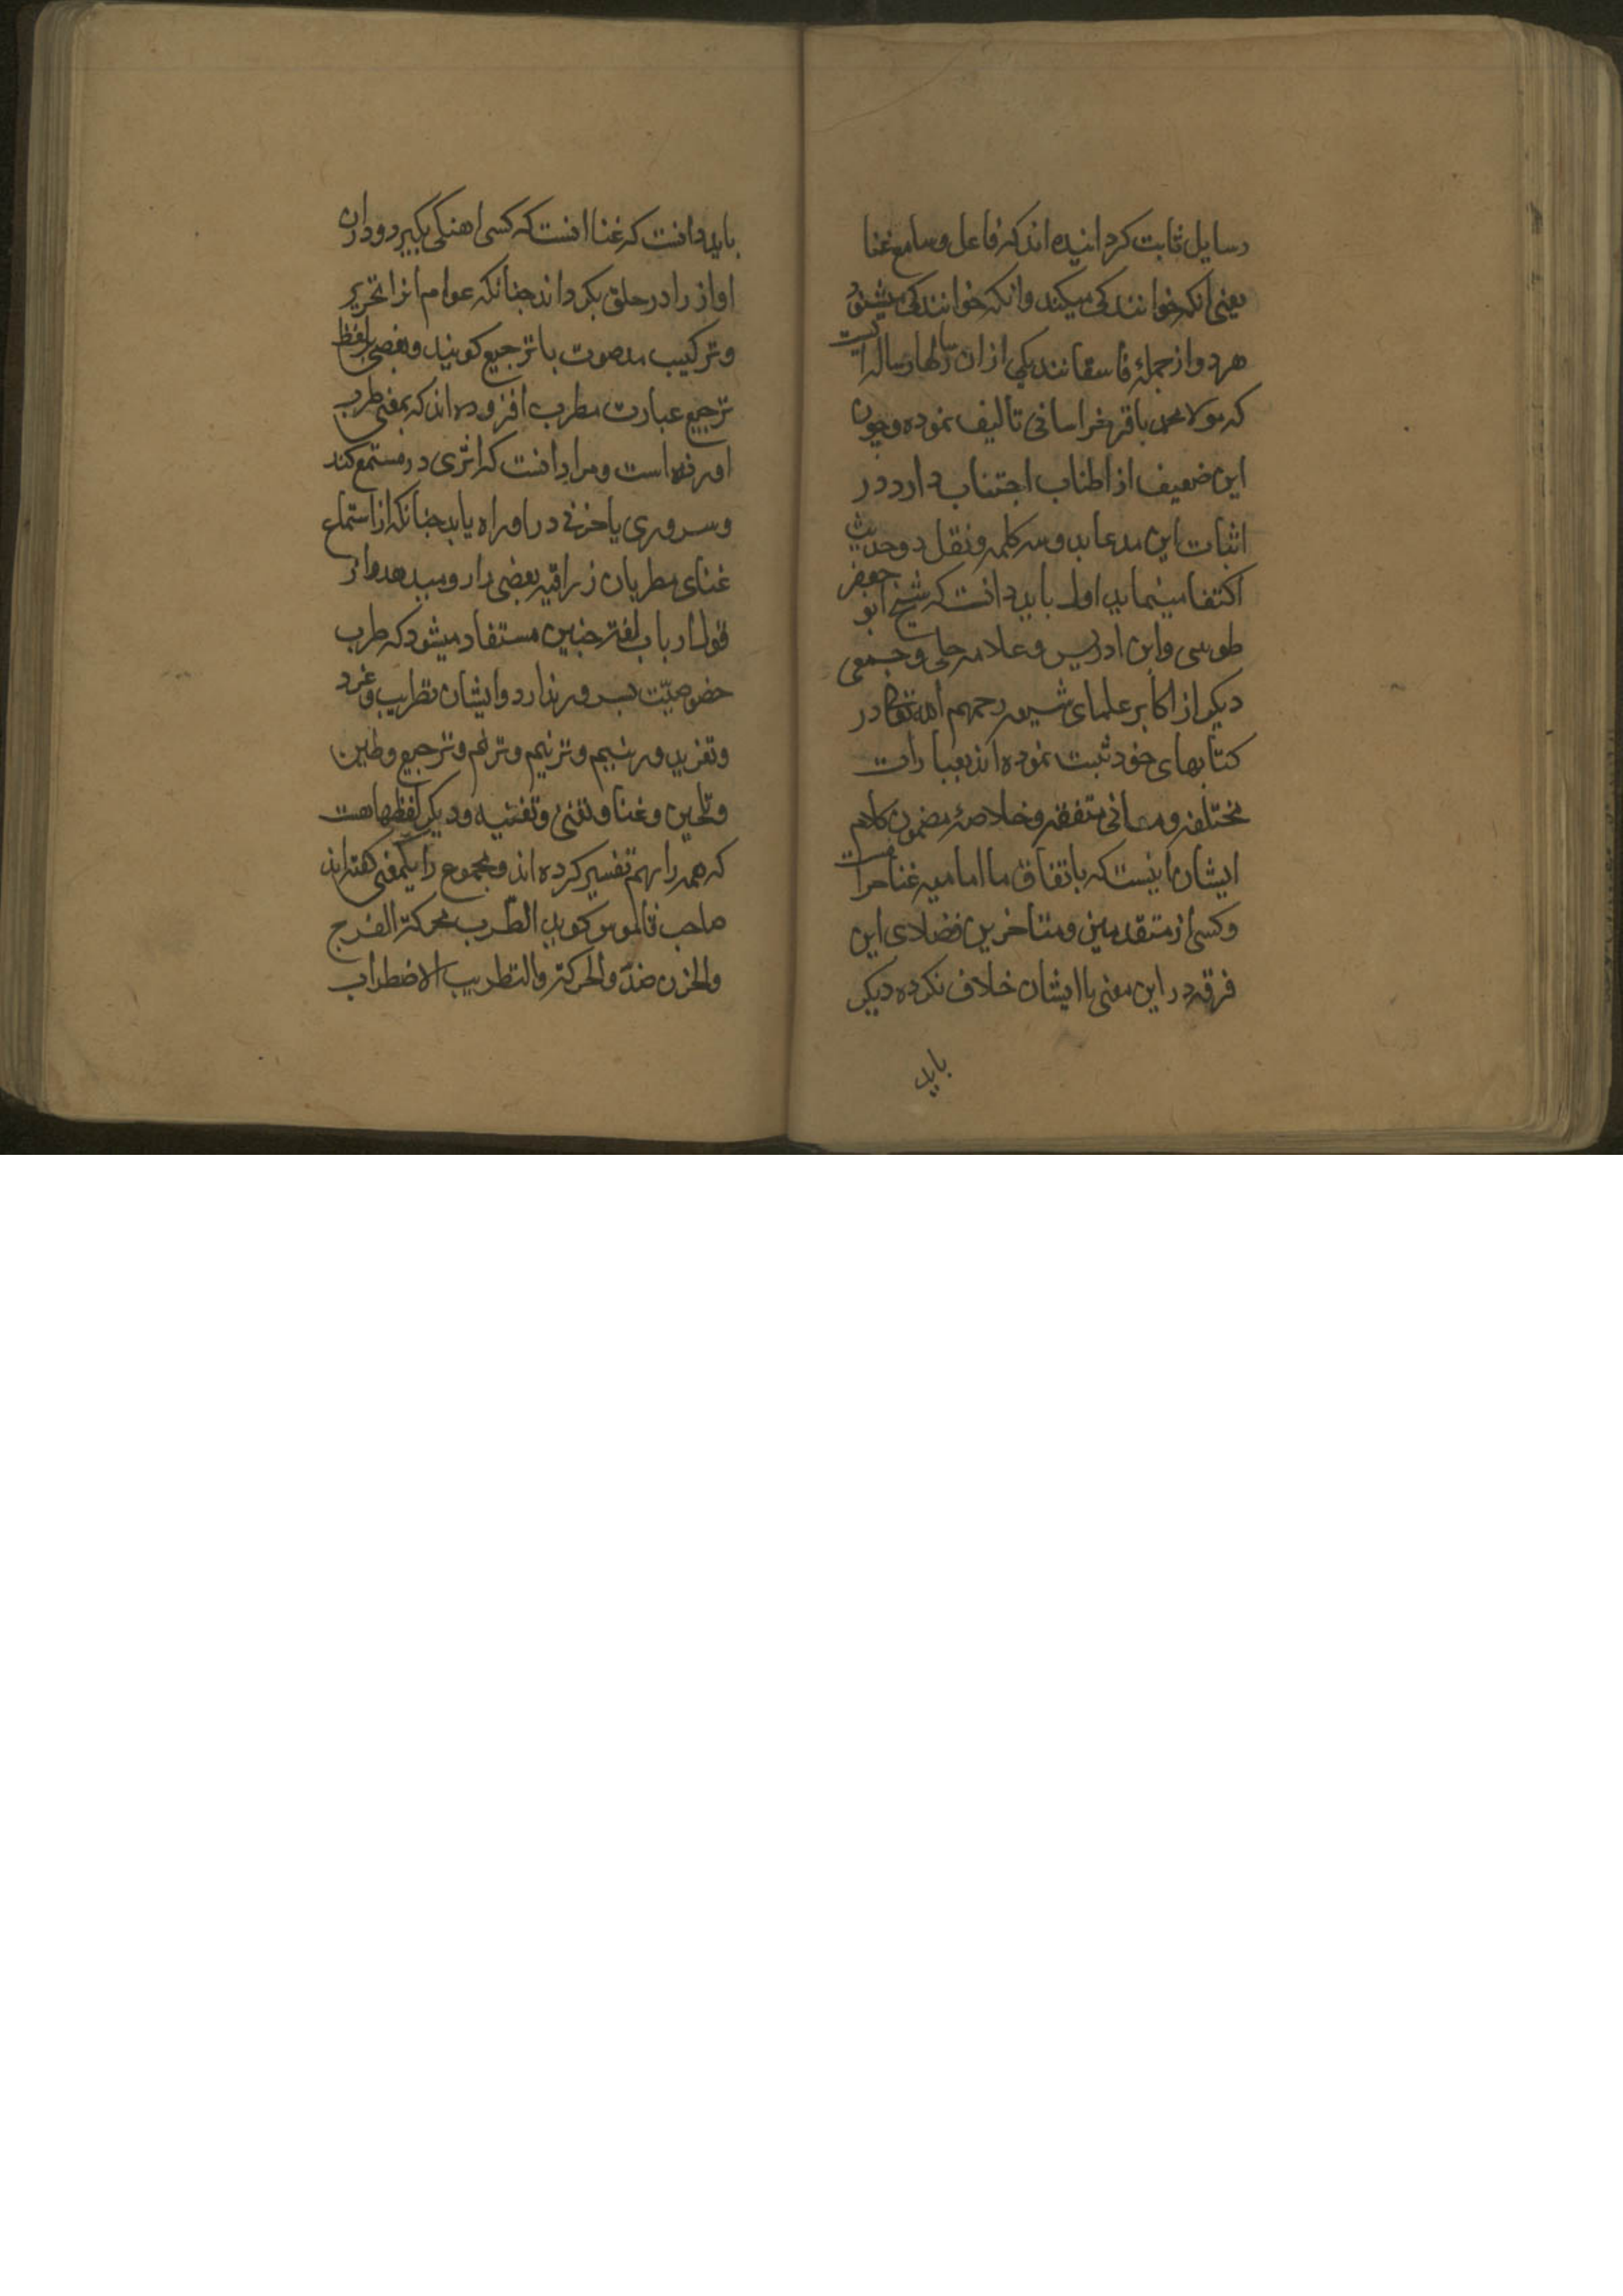 رسایل ثابت کردانیده اند که فاعل و سامع غنا
یعنی انکه خوانندکی میکند وانکه خوانندکی میشنود
هر دو از جملۀ فاسقانند یکی از ان رسالها رساله ایست
که مولا محمد باقر خراسانی تالیف نموده و چون
این ضعیف از اطناب اجتناب دارد در
اثبات این مدعا بدو سه کلمه و نقل دو حدیث
اکتفا مینماید اول باید دانست که شیخ ابو جعفر
طوسی و ابن ادریس و علامه حلی و جمعی
دیکر از اکابر علمای شیعه رحمهم الله تعالی در
کتابهای خود ثبت نموده اند بعبارات
مختلفه و معانی متفقه و خلاصۀ مضمون کلام
ایشان اینست که باتفاق ما امامیه غنا حرامست
و کسی از متقدمین و متاخرین فضلای این
فرقه در این معنی با ایشان خلاف نکرده دیکر
باید
باید دانست که غنا انست که کسی اهنکی بکیرد و در ان
اواز را در حلق بکرداند چنانکه عوام انرا تحریر
و ترکیب مد صوت با ترجیع کویند و بعضی بر لفظ
ترجیع عبارت مطرب افزوده اند که بمعنی طرب
اورنده است و مراد انست که اثری در مستمع کند
و سروری یا حزنی در او راه یابد چنانکه از استماع
غنای مطربان زراقیه بعضی را رو میدهد و از
قول ارباب لغة چنین مستفاد میشود که طرب
خصوصیّت بسرور ندارد و ایشان تطریب و غرد
و تغرید و رنیم و ترنیم و ترنم و ترجیع و طنین
و تلحین و غنا و تغنی و تغنیه و دیکر لفظها هست
که همه را بهم تفسیر کرده اند و مجموع را بیکمعنی کفته اند
صاحب قاموس کوید الطّرب محرکة الفرح
والحزن ضدّ والحرکة والتطریب الاضطراب